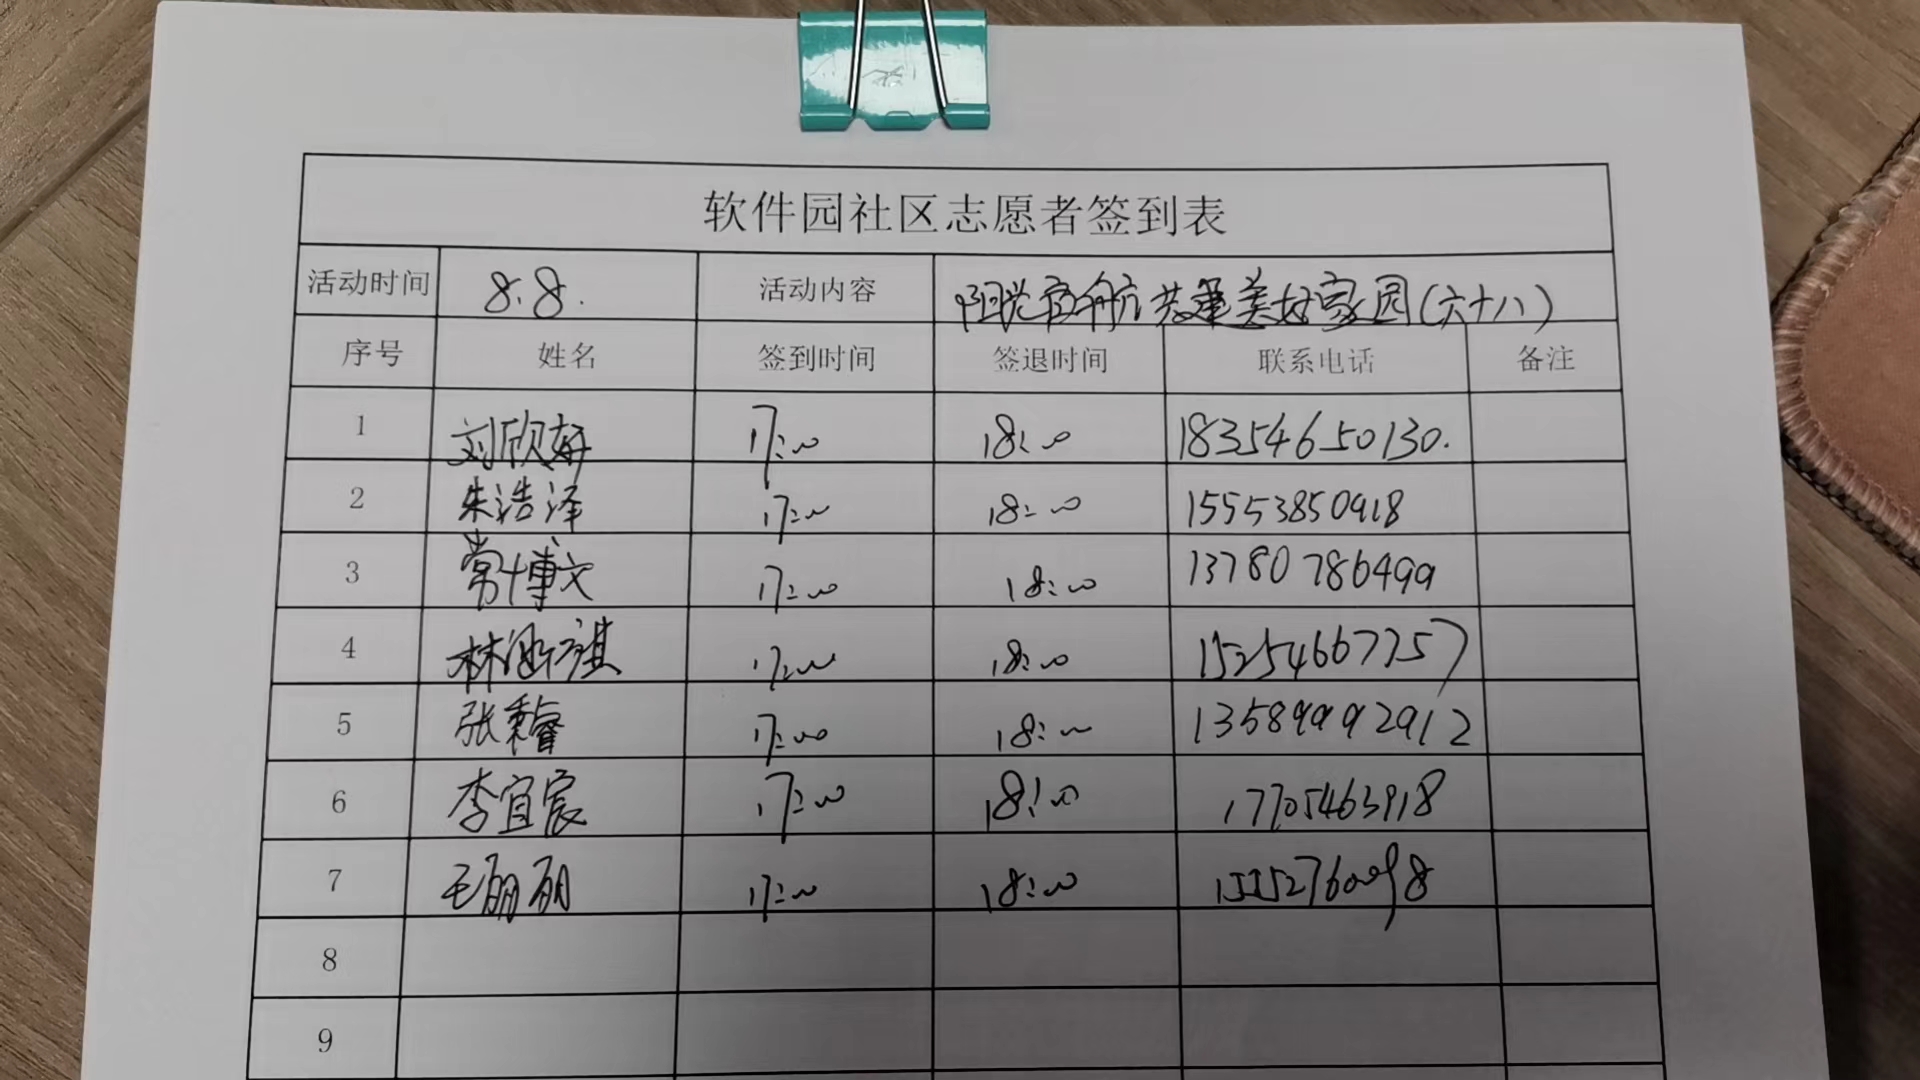 软件园社区志愿者签到表
活动时间 8.8. 活动内容 阳光启航共建美好家园(六十八)
序号 姓名 签到时间 签退时间 联系电话 备注
1 刘欣妍 17:00 18:00 18354650130.
2 朱浩泽 17:00 18:00 15553850918
3 常博文 17:00 18:00 13780786499
4 林 祺 17:00 18:00 15254667757
5 张睿 17:00 18:00 13589992912
6 李宜宸 17:00 18:00 17705463918
7 毛丽丽 17:00 18:00
8
9